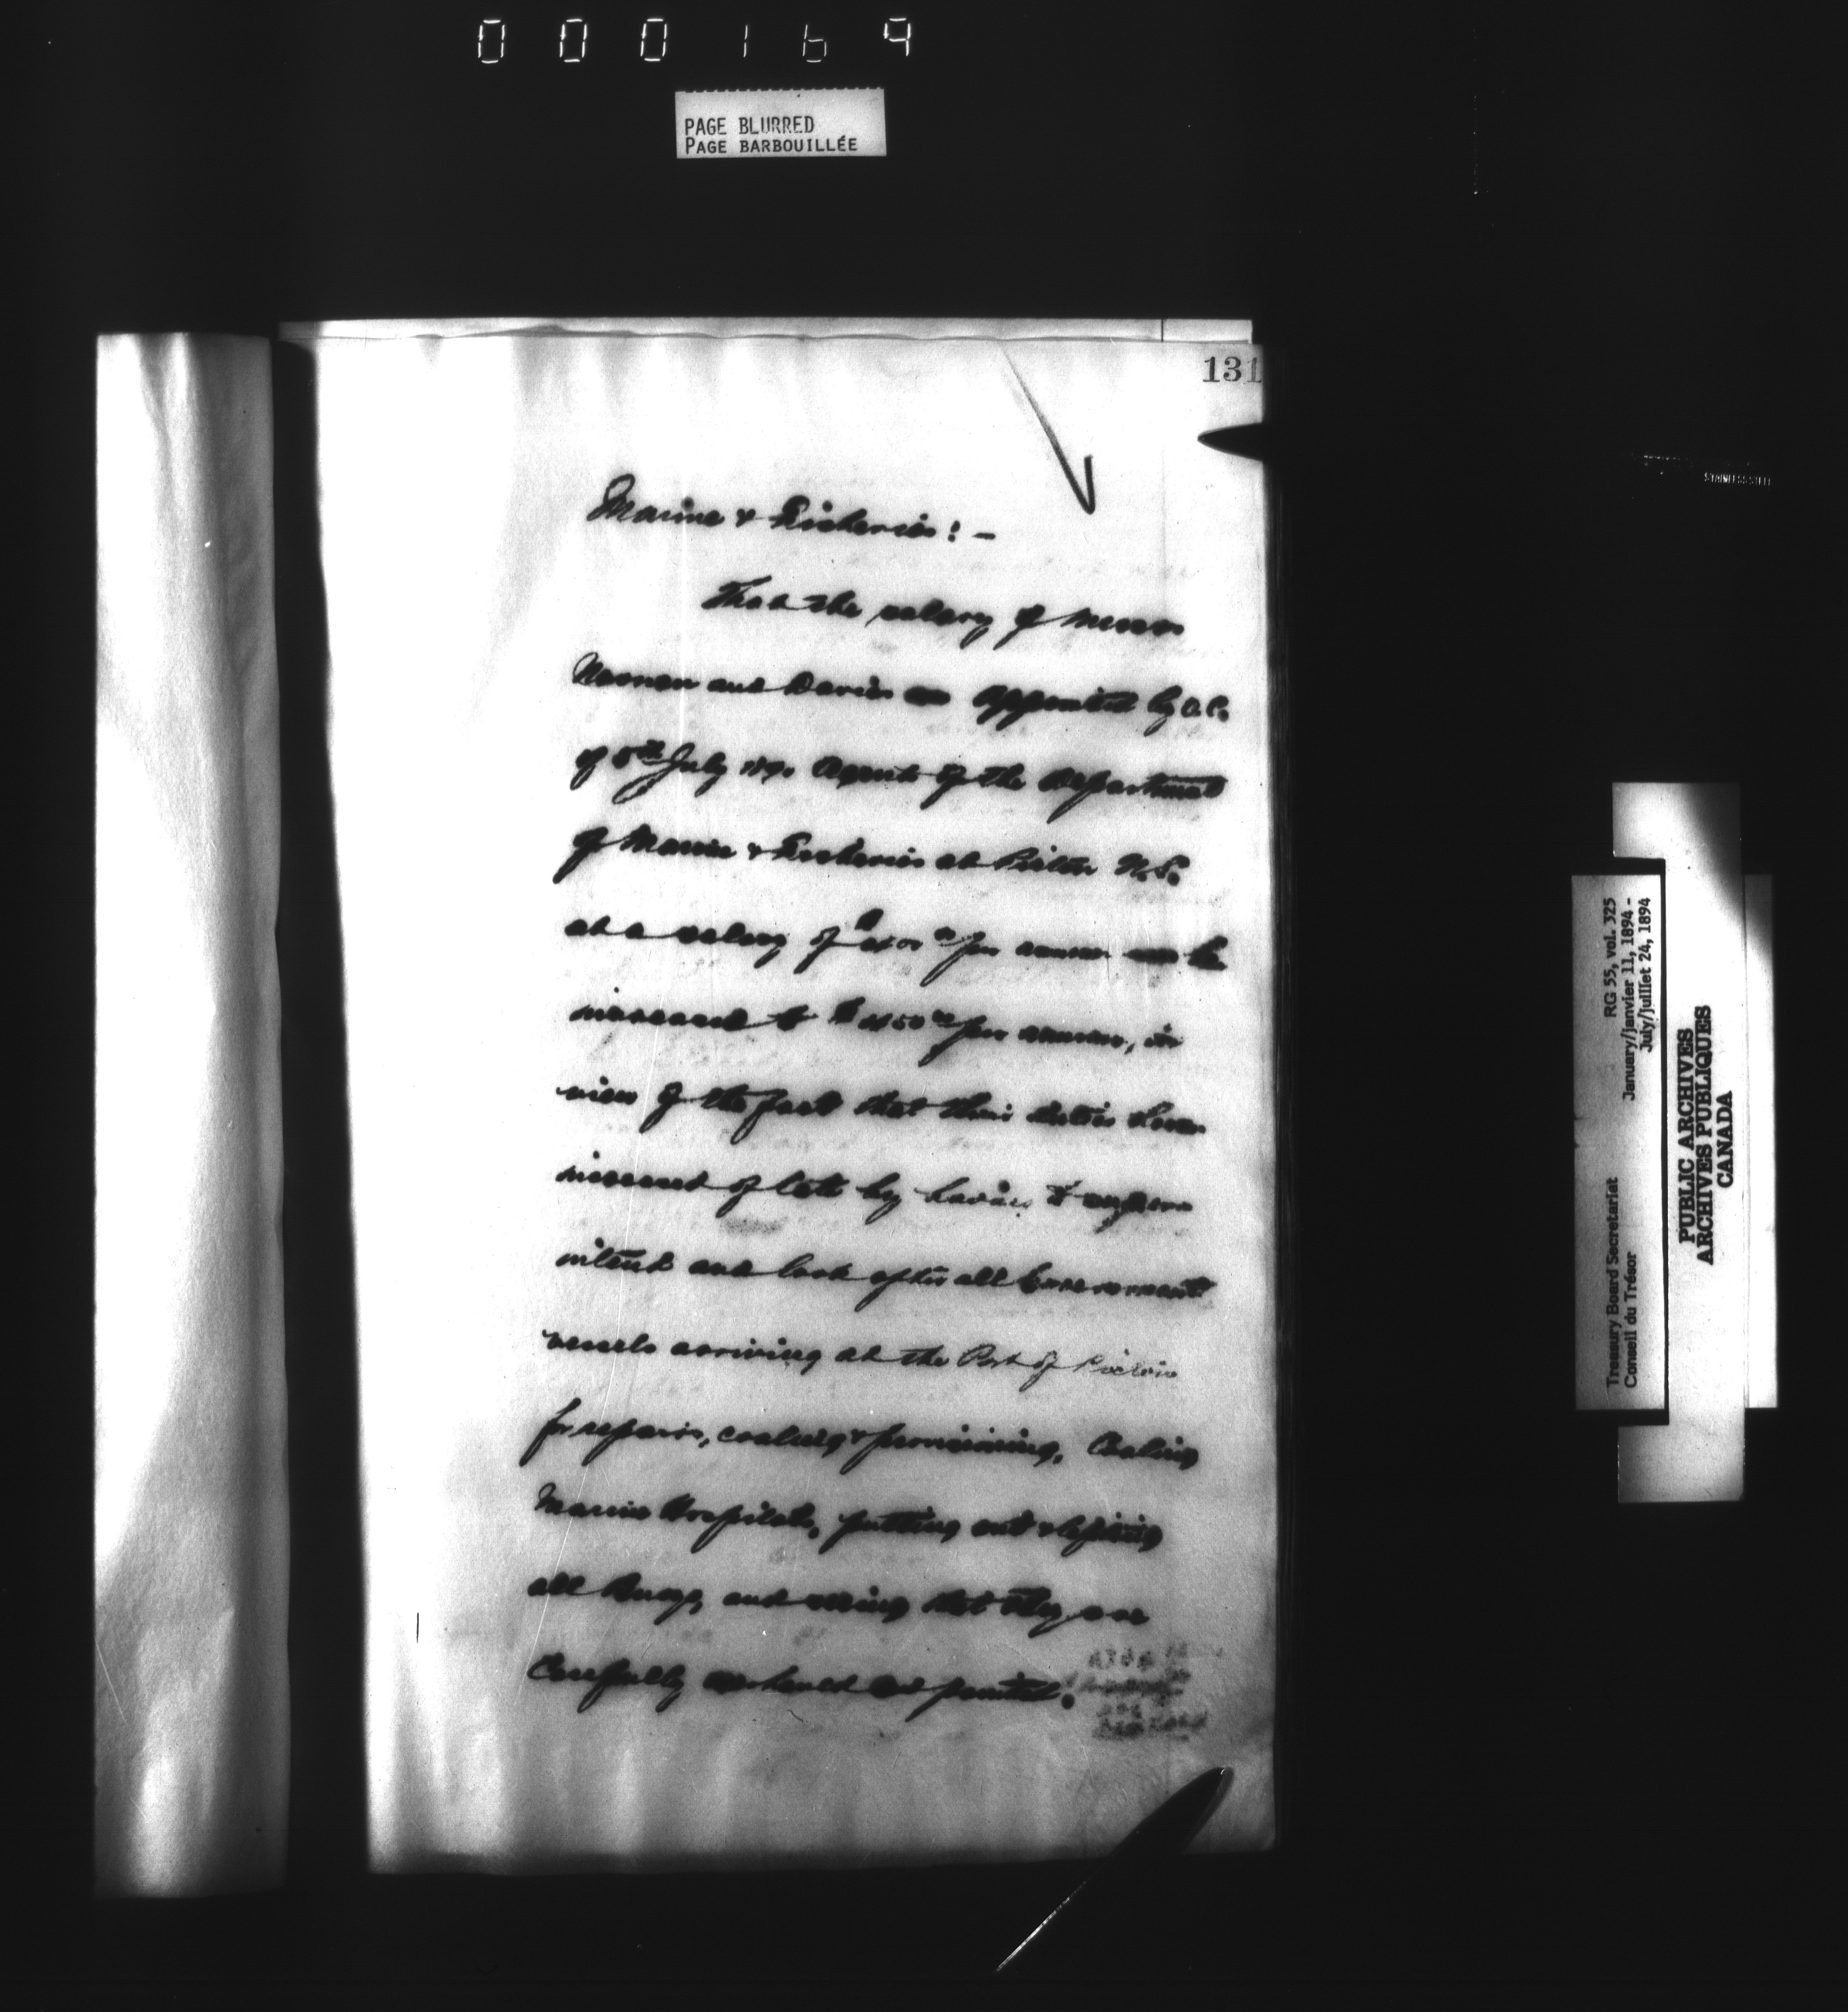 000169
PAGE BLURRED
PAGE BARBOUILLÉE
131
Marine & Fisheries: -
That the salary of Messrs
Noonan and Davies appointed by O.C.
of 5th July 1890 Agents of the Department
of Marine & Fisheries at Pictou N.S.
at a salary of $ per annum be
increased to $ per annum, in
view of the fact that their duties have
increased of late by having to super
intend and look after all Government
vessels arriving at the Port of Pictou
for repairs, coaling & provisioning, Coaling
Marine Hospitals, putting out & lifting
all Buoys, and seeing that they are
Carefully and painted.
STAINLESS STEEL
Treasury Board Secretariat RG 55, vol. 325
Conseil du Trésor January/janvier 11, 1894 -
July/juillet 24, 1894
PUBLIC ARCHIVES
ARCHIVES PUBLIQUES
CANADA